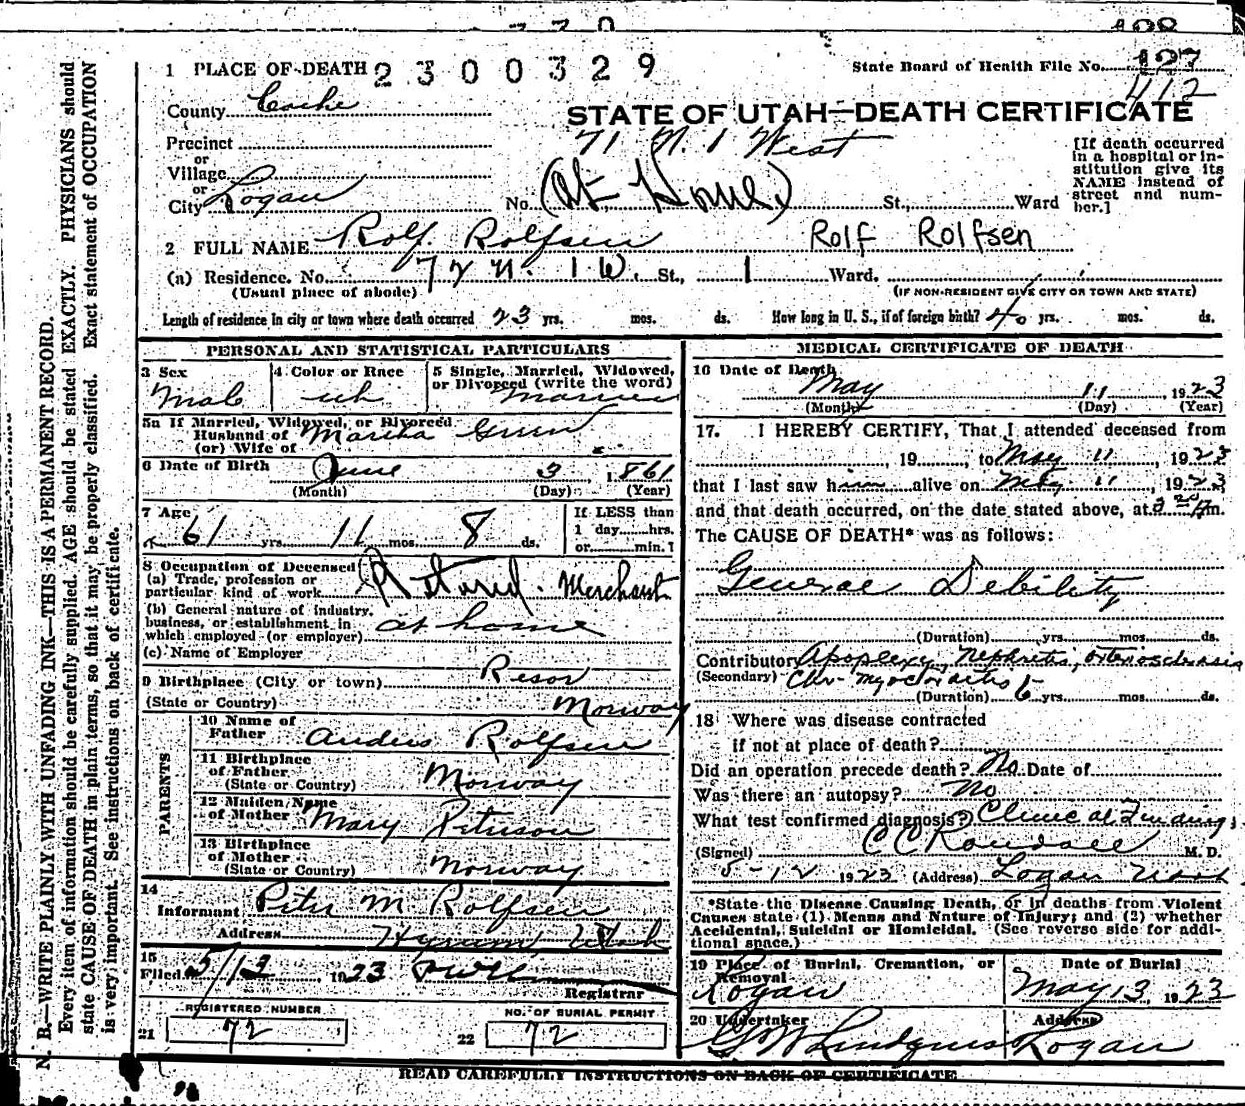 1 PLACE OF DEATH 2300329
State Board of Health File No. 127
412
County Cache
STATE OF UTAH—DEATH CERTIFICATE
Precinct
71 N. 1 West
or
Village
or
City Logan
No. (At Home) St., Ward
[If death occurred
in a hospital or in-
stitution give its
NAME instead of
street and num-
ber.]
2 FULL NAME Rolf Rolfsen Rolf Rolfsen
(a) Residence. No. 72 N. 1 W. St., 1 Ward.
(Usual place of abode) (IF NON-RESIDENT GIVE CITY OR TOWN AND STATE)
Length of residence in city or town where death occurred 23 yrs. mos. ds. How long in U. S., if of foreign birth? 40 yrs. mos. ds.
PERSONAL AND STATISTICAL PARTICULARS
3 Sex Male
4 Color or Race wh
5 Single, Married, Widowed,
or Divorced (write the word)
Married
5a If Married, Widowed, or Divorced
Husband of Martha Green
(or) Wife of
6 Date of Birth June 3 1861
(Month) (Day) (Year)
7 Age 61 yrs. 11 mos. 8 ds.
If LESS than
1 day hrs.
or min. ?
8 Occupation of Deceased
(a) Trade, profession or
particular kind of work Retired. Merchant
(b) General nature of industry.
business, or establishment in
which employed (or employer) at home
(c) Name of Employer
9 Birthplace (City or town) Resor
(State or Country) Norway
PARENTS
10 Name of
Father Anders Rolfsen
11 Birthplace
of Father
(State or Country) Norway
12 Maiden Name
of Mother Mary Peterson
13 Birthplace
of Mother
(State or Country) Norway
14
Informant Peter M. Rolfsen
Address Hyrum Utah
15
Filed 5/12 1923
Registrar
REGISTERED NUMBER
21 72
NO. OF BURIAL PERMIT
22 72
MEDICAL CERTIFICATE OF DEATH
16 Date of Death
May 11, 1923
(Month) (Day) (Year)
17. I HEREBY CERTIFY, That I attended deceased from
, 19 , to May 11, 1923
that I last saw him alive on May 11, 1923
and that death occurred, on the date stated above, at 3 20 m.
The CAUSE OF DEATH* was as follows:
General Debility
(Duration) yrs. mos. ds.
Contributory Apoplexy, Nephritis, Arteriosclerosis
(Secondary) Chr. Myocarditis
(Duration) 6 yrs. mos. ds.
18 Where was disease contracted
if not at place of death?
Did an operation precede death? No Date of
Was there an autopsy? No
What test confirmed diagnosis? Clinical Findings
(Signed) C C Randall M. D.
5-12 1923 (Address) Logan Utah
*State the Disease Causing Death, or in deaths from Violent
Causes state (1) Menns and Nature of Injury; and (2) whether
Accidental, Suicidal or Homicidal. (See reverse side for addi-
tional space.)
19 Place of Burial, Cremation, or
Removal
Logan
Date of Burial
May 13 1923
20 Undertaker
G W Lindquist
Address
Logan
READ CAREFULLY INSTRUCTIONS ON BACK OF CERTIFICATE
N. B.—WRITE PLAINLY WITH UNFADING INK—THIS IS A PERMANENT RECORD.
Every item of information should be carefully supplied. AGE should be stated EXACTLY. PHYSICIANS should
state CAUSE OF DEATH in plain terms, so that it may be properly classified. Exact statement of OCCUPATION
is very important. See instructions on back of certificate.